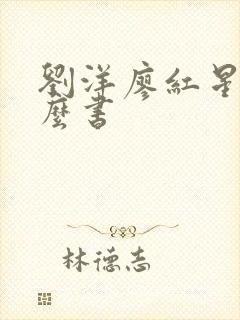 劉洋廖紅星
麼書
林德志